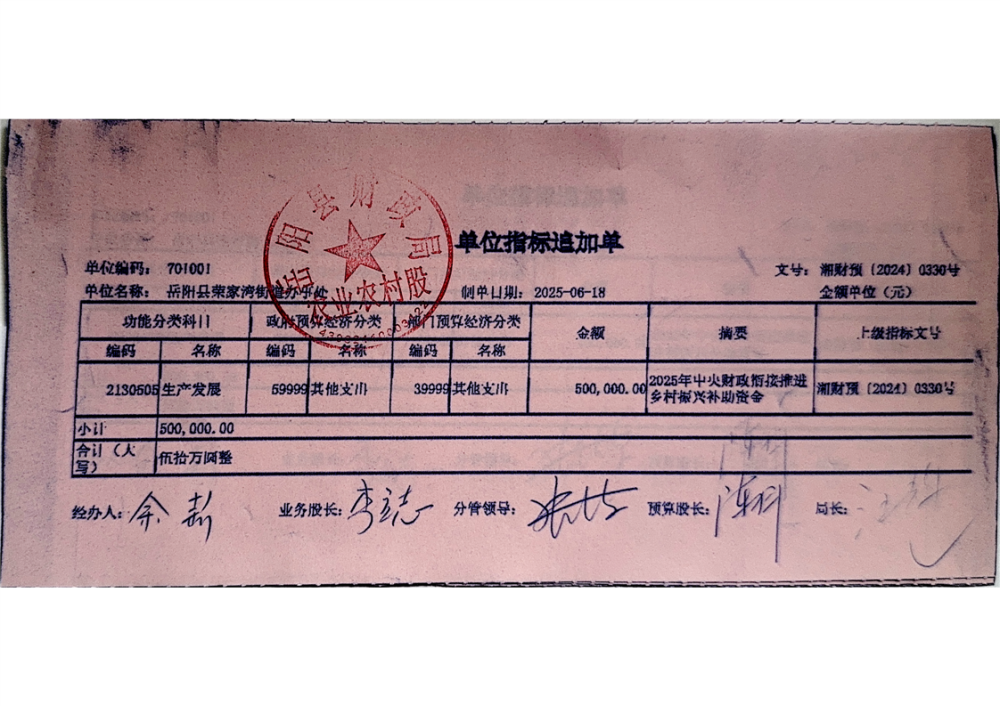 单位指标追加单
单位编码: 701001
文号: 湘财预〔2024〕0330号
单位名称: 岳阳县荣家湾街道办事处
制单日期: 2025-06-18
金额单位(元)
功能分类科目 政府预算经济分类 部门预算经济分类 金额 摘要 上级指标文号
编码 名称 编码 名称 编码 名称
2130505 生产发展 59999 其他支出 39999 其他支出 500,000.00 2025年中央财政衔接推进乡村振兴补助资金 湘财预〔2024〕0330号
小计 500,000.00
合计(大写) 伍拾万圆整
经办人: 余 业务股长: 李志 分管领导: 预算股长: 陈科 局长: 汪
岳阳县财政局
农业农村股